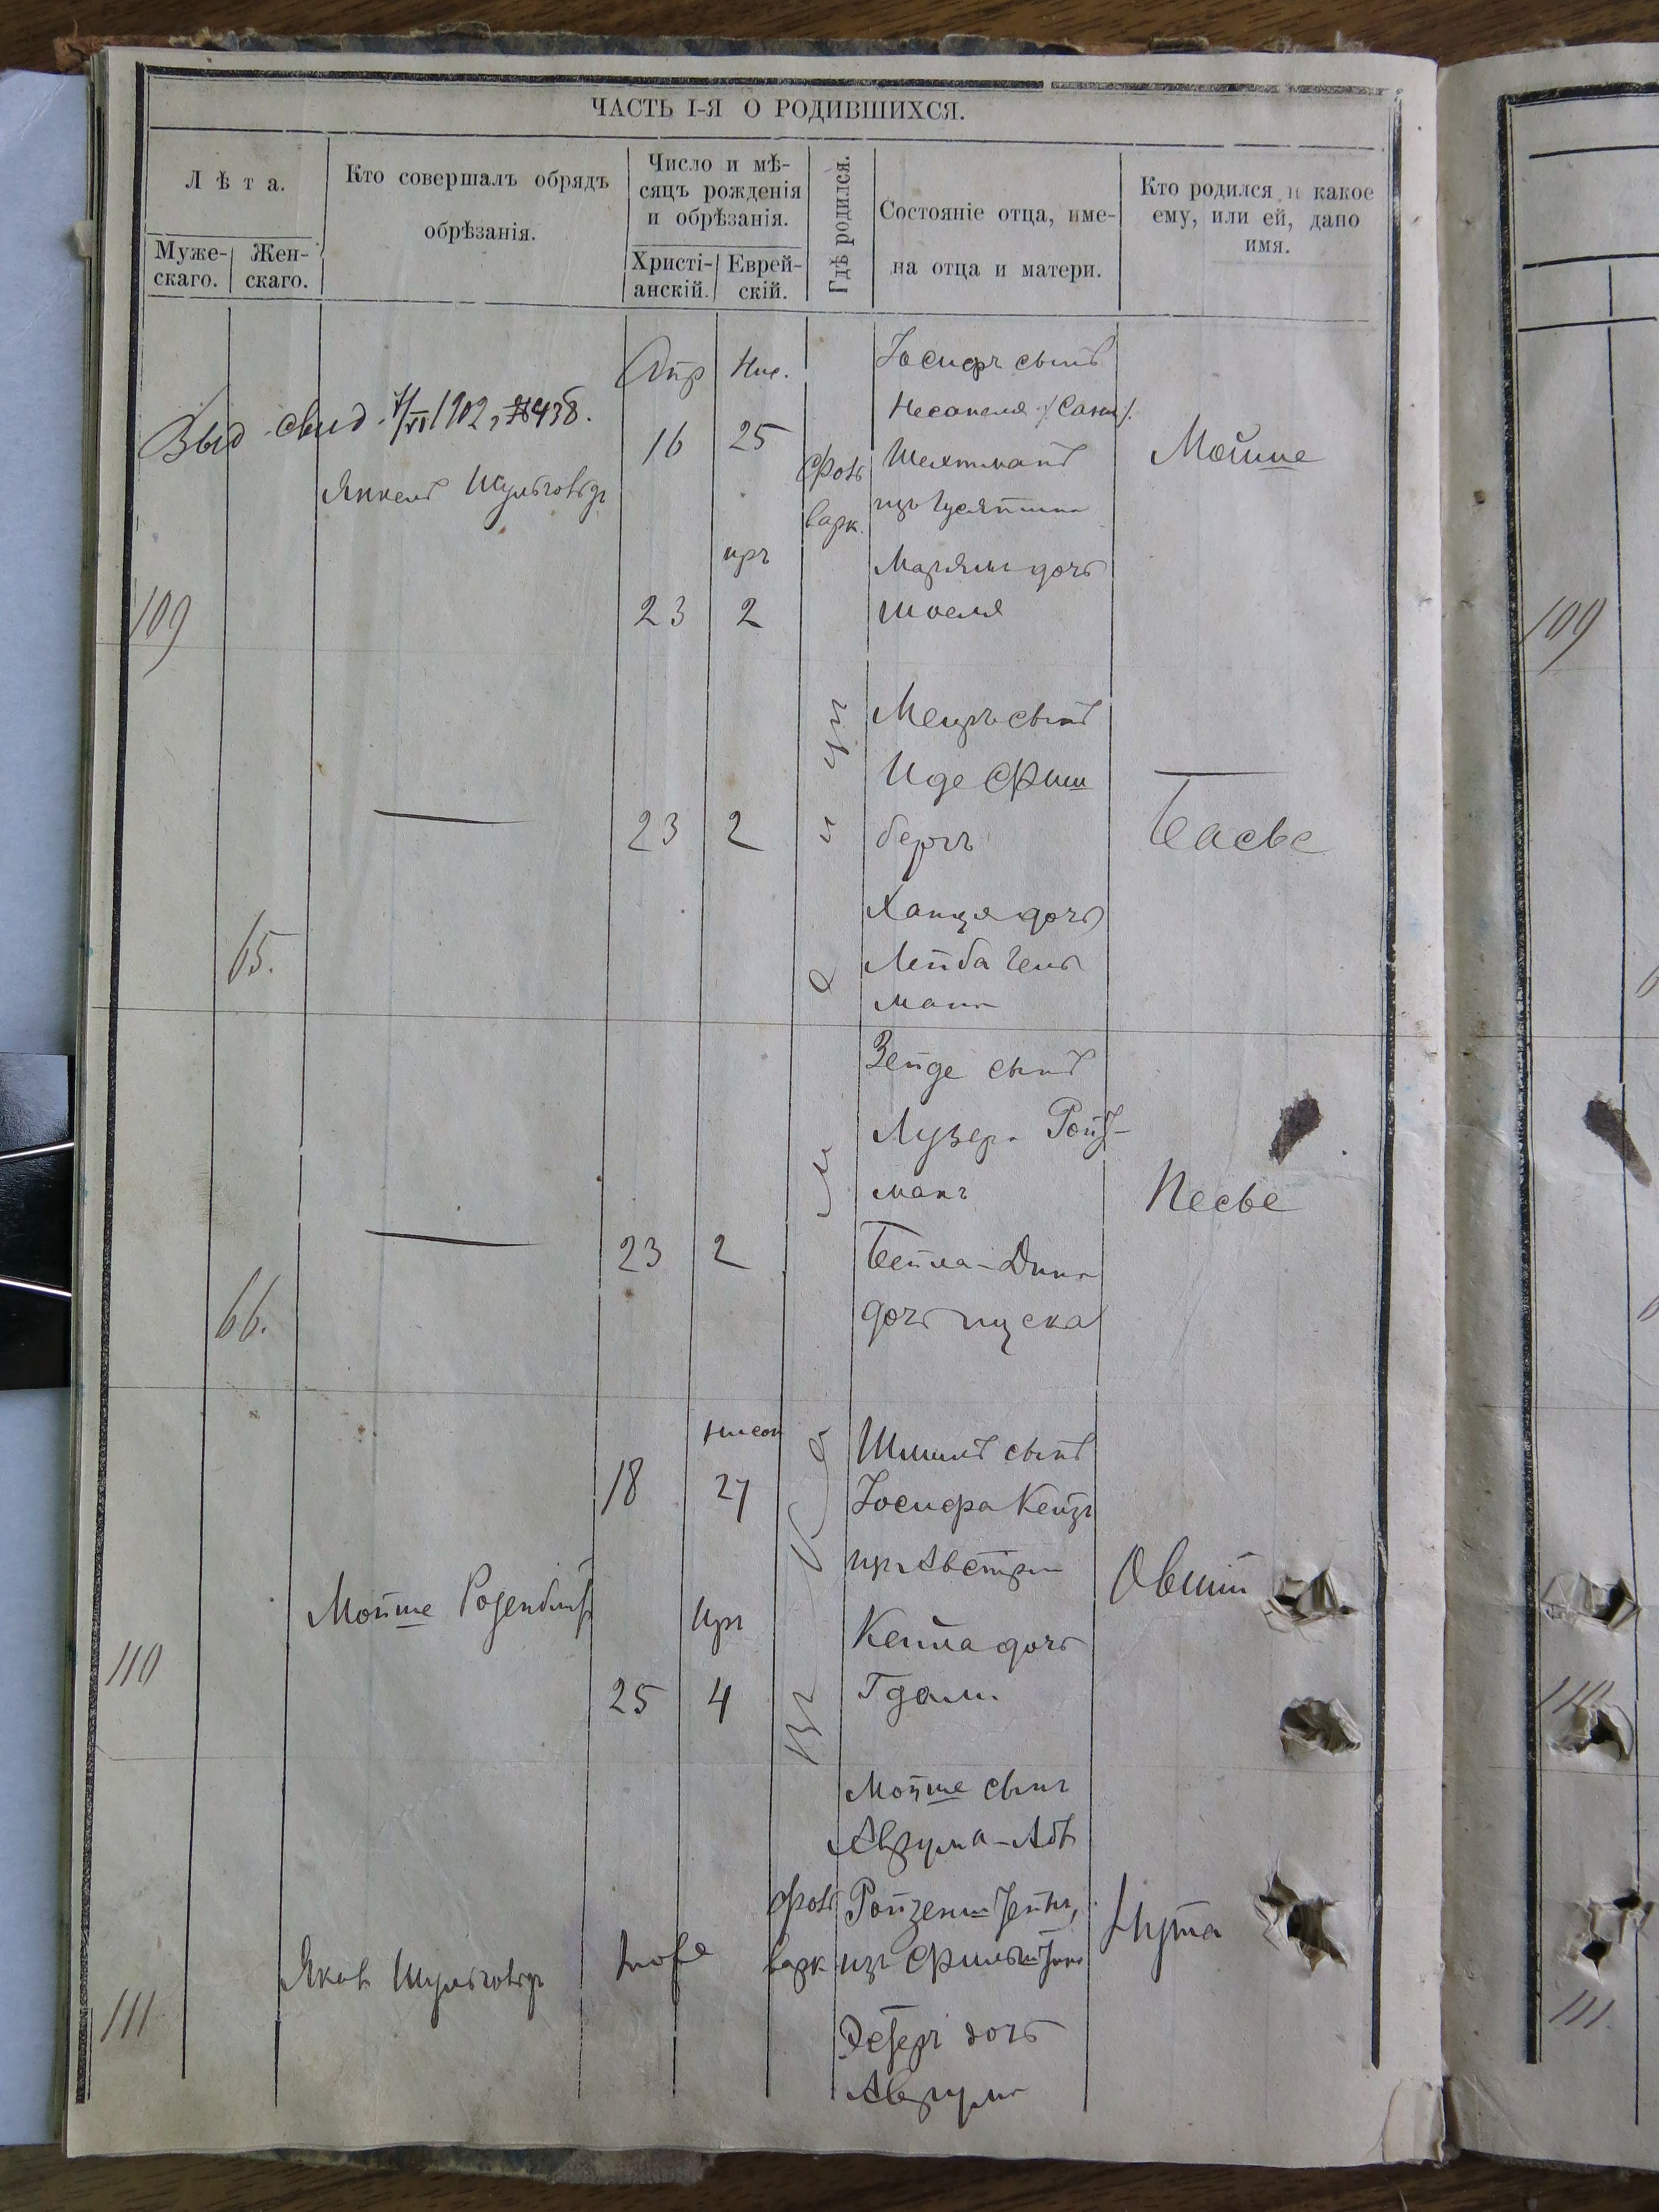 ЧАСТЬ I-Я О РОДИВШИХСЯ.
Лѣта.
Муже-
скаго.
Жен-
скаго.
Кто совершалъ обрядъ
обрѣзанія.
Число и мѣ-
сяцъ рожденія
и обрѣзанія.
Христі-
анскій.
Еврей-
скій.
Гдѣ родился.
Состояніе отца, име-
на отца и матери.
Кто родился и какое
ему, или ей, дано
имя.
Выд свид. 7/VI 1902, №438.
Янкель Шульговъръ
109
Апр
16
23
Нис.
25
иръ
2
Фоль
варк.
Іосифъ сынъ
Шехтманъ
изъ Гусятина
Марьямъ дочь
Мойше
65.
—
23
2
Меиръ сынъ
Иде Фиш
бергъ
Ханця дочь
Лейба Гель
манъ
Басье
66.
—
23
2
Зейде сынъ
Лузера Ройт-
манъ
Бейла-Дина
дочь Ицека
Песье
110
Мойше Розенблитъ
18
25
нисон
27
Иръ
4
Шмилъ сынъ
Іосифа Кейзъ
изъ Австріи
Кейла дочь
Гдали
Овшій
111
Яковъ Шульговъръ
тоже
Фоль
варк
Мойше сынъ
Аврума-Аба
Ройзенштейнъ,
изъ Фильштина
Эстеръ дочь
Аврума
Нута
109
110
111